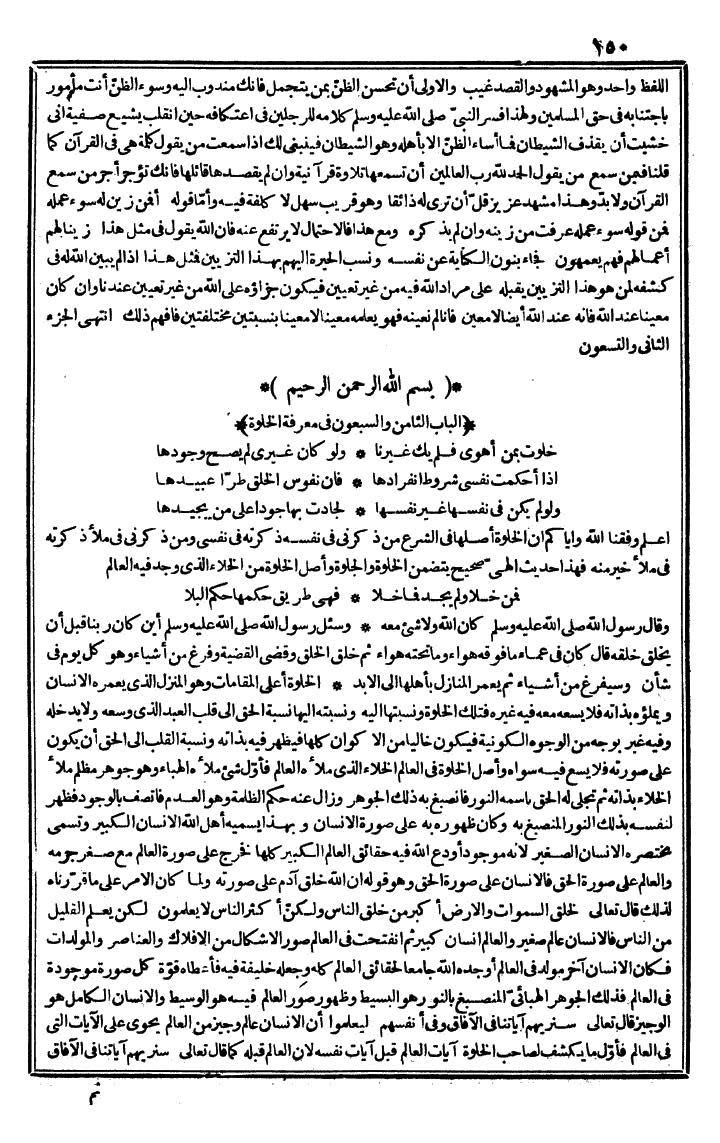 ٢٥٠
اللفظ واحد وهو المشهود والقصد غيب والاولى أن تحسن الظنّ بمن يتجمل فانك مندوب اليه وسوء الظنّ أنت مأمور
باجتنابه فى حق المسلمين ولهذا فسر النبىّ صلى الله عليه وسلم كلامه للرجلين فى اعتكافه حين انقلب يشيع صفية انى
خشيت أن يقذف الشيطان فما أساء الظنّ الا بأهله وهو الشيطان فينبغى لك اذا سمعت من يقول كلمة هى فى القرآن كما
قلنا فيمن سمع من يقول الحمد لله رب العالمين أن تسمعها تلاوة قرآنية وان لم يقصدها قائلها فانك تؤجر أجر من سمع
القرآن ولا بدّ وهذا مشهد عزيز قلّ أن ترى له ذائقا وهو قريب سهل لا كلفة فيه وأمّا قوله أفمن زين له سوء عمله
فمن قوله سوء عمله عرفت من زينه وان لم يذكره ومع هذا فالاحتمال لا يرتفع عنه فان الله يقول فى مثل هذا زينا لهم
أعمالهم فهم يعمهون فجاء بنون الكناية عن نفسه ونسب الحيرة اليهم بهذا التزيين فمثل هذا اذا لم يبين الله له فى
كشفه لمن هو هذا التزيين يقبله على مراد الله فيه من غير تعيين فيكون جزاؤه على الله من غير تعيين عندنا وان كان
معينا عند الله فانه عند الله أيضا لا معين فانا لم نعينه فهو يعلمه معينا لا معينا بنسبتين مختلفتين فافهم ذلك انتهى الجزء
الثانى والتسعون
*( بسم الله الرحمن الرحيم )*
﴿الباب الثامن والسبعون فى معرفة الخلوة﴾
خلوت بمن أهوى فلم يك غيرنا * ولو كان غيرى لم يصح وجودها
اذا أحكمت نفسى شروط انفرادها * فان نفوس الخلق طرّا عبيدها
ولو لم يكن فى نفسها غير نفسها * لجادت بها جودا على من يجيدها
اعلم وفقنا الله واياكم ان الخلوة أصلها فى الشرع من ذكرنى فى نفسه ذكرته فى نفسى ومن ذكرنى فى ملأ ذكرته
فى ملأ خير منه فهذا حديث الهىّ صحيح يتضمن الخلوة والجلوة وأصل الخلوة من الخلاء الذى وجد فيه العالم
فمن خلا ولم يجد فما خلا * فهى طريق حكمها حكم البلا
وقال رسول الله صلى الله عليه وسلم كان الله ولا شئ معه * وسئل رسول الله صلى الله عليه وسلم أين كان ربنا قبل أن
يخلق خلقه قال كان فى عماء ما فوقه هواء وما تحته هواء ثم خلق الخلق وقضى القضية وفرغ من أشياء وهو كل يوم فى
شأن وسيفرغ من أشياء ثم يعمر المنازل بأهلها الى الابد * الخلوة أعلى المقامات وهو المنزل الذى يعمره الانسان
ويملؤه بذاته فلا يسعه معه فيه غيره فتلك الخلوة ونسبتها اليه ونسبته اليها نسبة الحق الى قلب العبد الذى وسعه ولا يدخله
وفيه غير بوجه من الوجوه الكونية فيكون خاليا من الاكوان كلها فيظهر فيه بذاته ونسبة القلب الى الحق أن يكون
على صورته فلا يسع فيه سواه وأصل الخلوة فى العالم الخلاء الذى ملأه العالم فأوّل شئ ملأه الهباء وهو جوهر مظلم ملأ
الخلاء بذاته ثم تجلى له الحق باسمه النور فانصبغ به ذلك الجوهر وزال عنه حكم الظلمة وهو العدم فاتصف بالوجود فظهر
لنفسه بذلك النور المنصبغ به وكان ظهوره به على صورة الانسان وبهذا يسميه أهل الله الانسان الكبير وتسمى
مختصره الانسان الصغير لانه موجود أودع الله فيه حقائق العالم الكبير كلها فخرج على صورة العالم مع صغر جرمه
والعالم على صورة الحق فالانسان على صورة الحق وهو قوله ان الله خلق آدم على صورته ولما كان الامر على ما قرّرناه
لذلك قال تعالى لخلق السموات والارض أكبر من خلق الناس ولكنّ أكثر الناس لا يعلمون لكن يعلم القليل
من الناس فالانسان عالم صغير والعالم انسان كبير ثم انفتحت فى العالم صور الاشكال من الافلاك والعناصر والمولدات
فكان الانسان آخر مولد فى العالم أوجده الله جامعا لحقائق العالم كله وجعله خليفة فيه فأعطاه قوّة كل صورة موجودة
فى العالم فذلك الجوهر الهبائىّ المنصبغ بالنور هو البسيط وظهور صور العالم فيه هو الوسيط والانسان الكامل هو
الوجيز قال تعالى سنريهم آياتنا فى الآفاق وفى أنفسهم ليعلموا أن الانسان عالم وجيز من العالم يحوى على الآيات التى
فى العالم فأوّل ما يكشف لصاحب الخلوة آيات العالم قبل آيات نفسه لان العالم قبله كما قال تعالى سنريهم آياتنا فى الآفاق
ثم